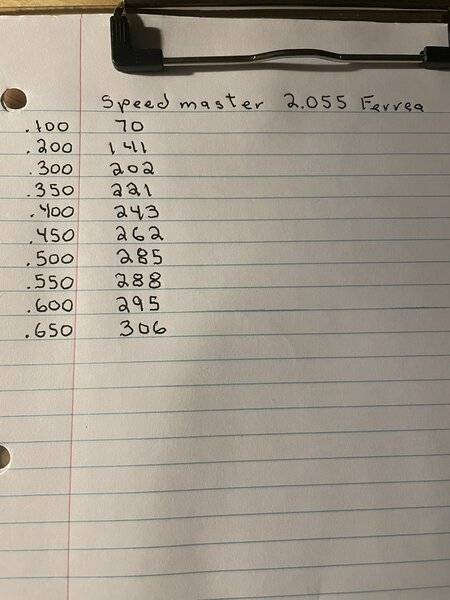 Speedmaster 2.055 Ferrea
.100 70
.200 141
.300 202
.350 221
.400 243
.450 262
.500 285
.550 288
.600 295
.650 306